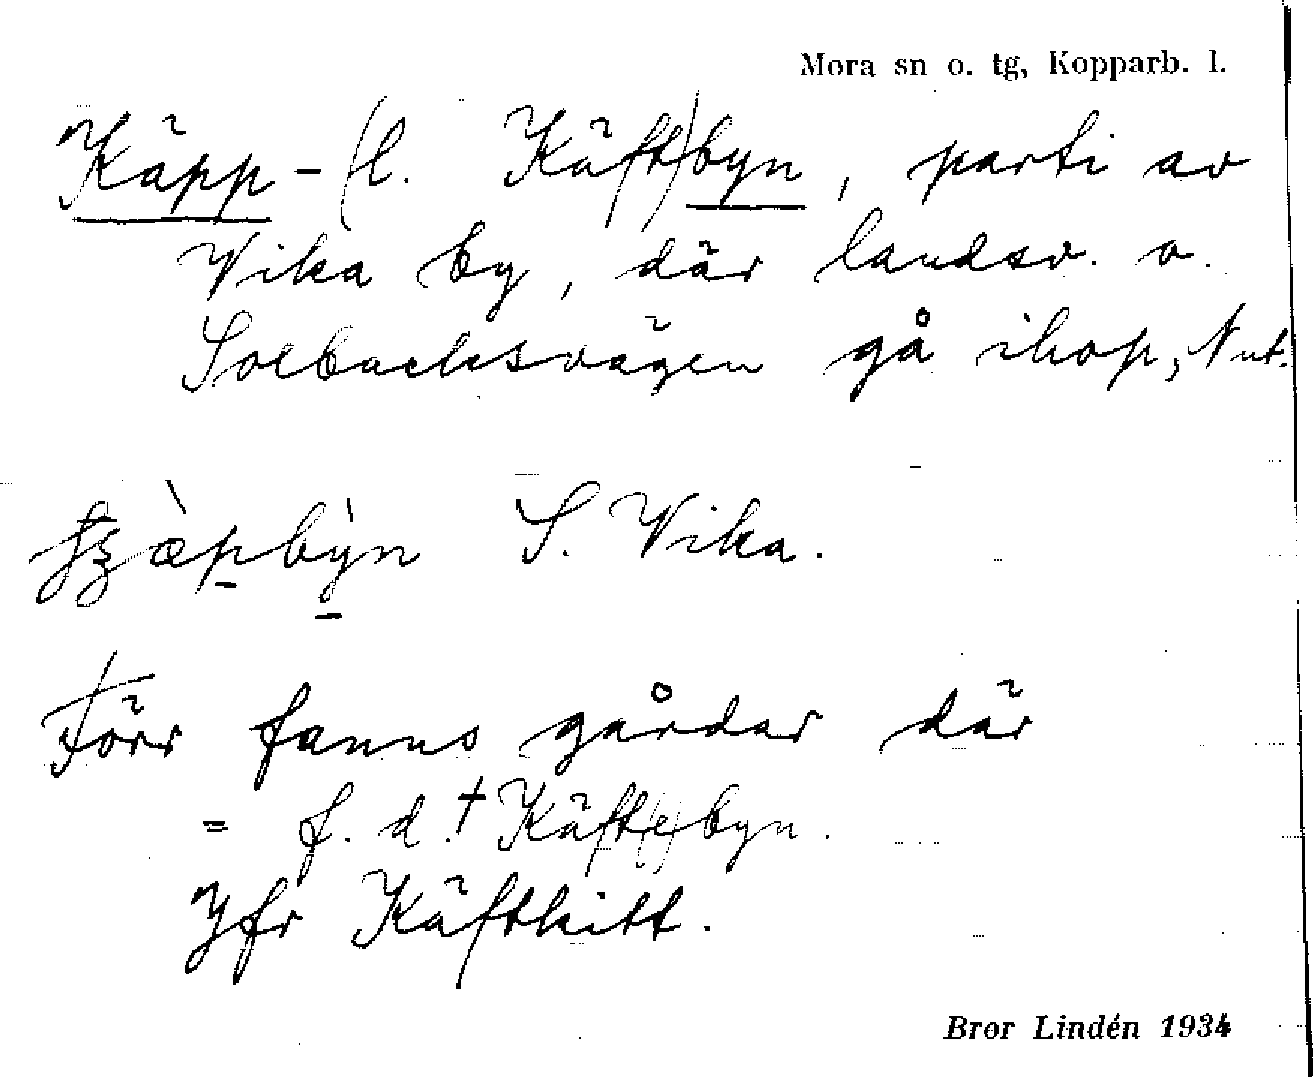 Mora sn o. tg, Kopparb. l.
Käpp-(l. Käft)byn, parti av
Vika by, där landsv. o.
Solbacksvägen gå ihop,
S. Vika.
Förr fanns gårdar där
= f. d. † Käft(e)byn.
Jfr Käfthitt.
Bror Lindén 1934